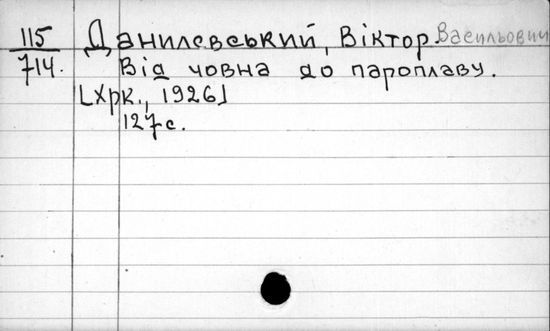 115 Данилевський, Віктор Васильович
714. Від човна до пароплаву.
[Хрк., 1926]
127 с.